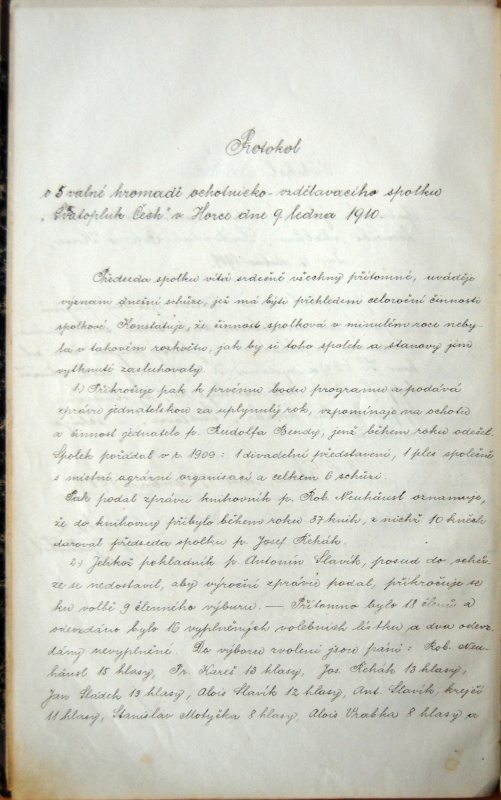 Protokol
o 5 valné hromadě ochotnicko-vzdělavacího spolku
„Svatopluk Čech" v Horce dne 9 ledna 1910.
Předseda spolku vítá srdečně všechny přítomné, uváděje
význam dnešní schůze, jež má býti přehledem celoroční činnosti
spolkové. Konstatuje, že činnost spolková v minulém roce neby-
la v takovém rozkvětu, jak by si toho spolek a stanovy jím
vytknuté zasluhovaly.
1.) Přikročuje pak k prvému bodu programu a podává
zprávu jednatelskou za uplynulý rok, vzpomínaje na ochotu
a činnost jednatele p. Rudolfa Bendy, jenž během roku odešel.
Spolek pořádal v r. 1909: 1 divadelní představení, 1 ples společně
s místní agrární organisací a celkem 6 schůzí.
Pak podal zprávu knihovník p. Rob. Neuhäusl oznamuje,
že do knihovny přibylo během roku 37 knih, z nichž 10 kněh
daroval předseda spolku p. Josef Řehák.
2.) Jelikož pokladník p. Antonín Slavík, posud do schů-
ze se nedostavil, aby výroční zprávu podal, přikročuje se
ku volbě 9 členného výboru. — Přítomno bylo 18 členů a
odevzdáno bylo 16 vyplněných volebních lístků a dva odevz-
dány nevyplněné. Do výboru zvoleni jsou pání: Rob. Neu-
häusl 15 hlasy, Fr. Kareš 13 hlasy, Jos. Řehák 13 hlasy,
Jan Sládek 13 hlasy, Alois Slavík 12 hlasy, Ant. Slavík, krejčí
11 hlasy, Stanislav Motyčka 8 hlasy, Alois Vrabka 8 hlasy a